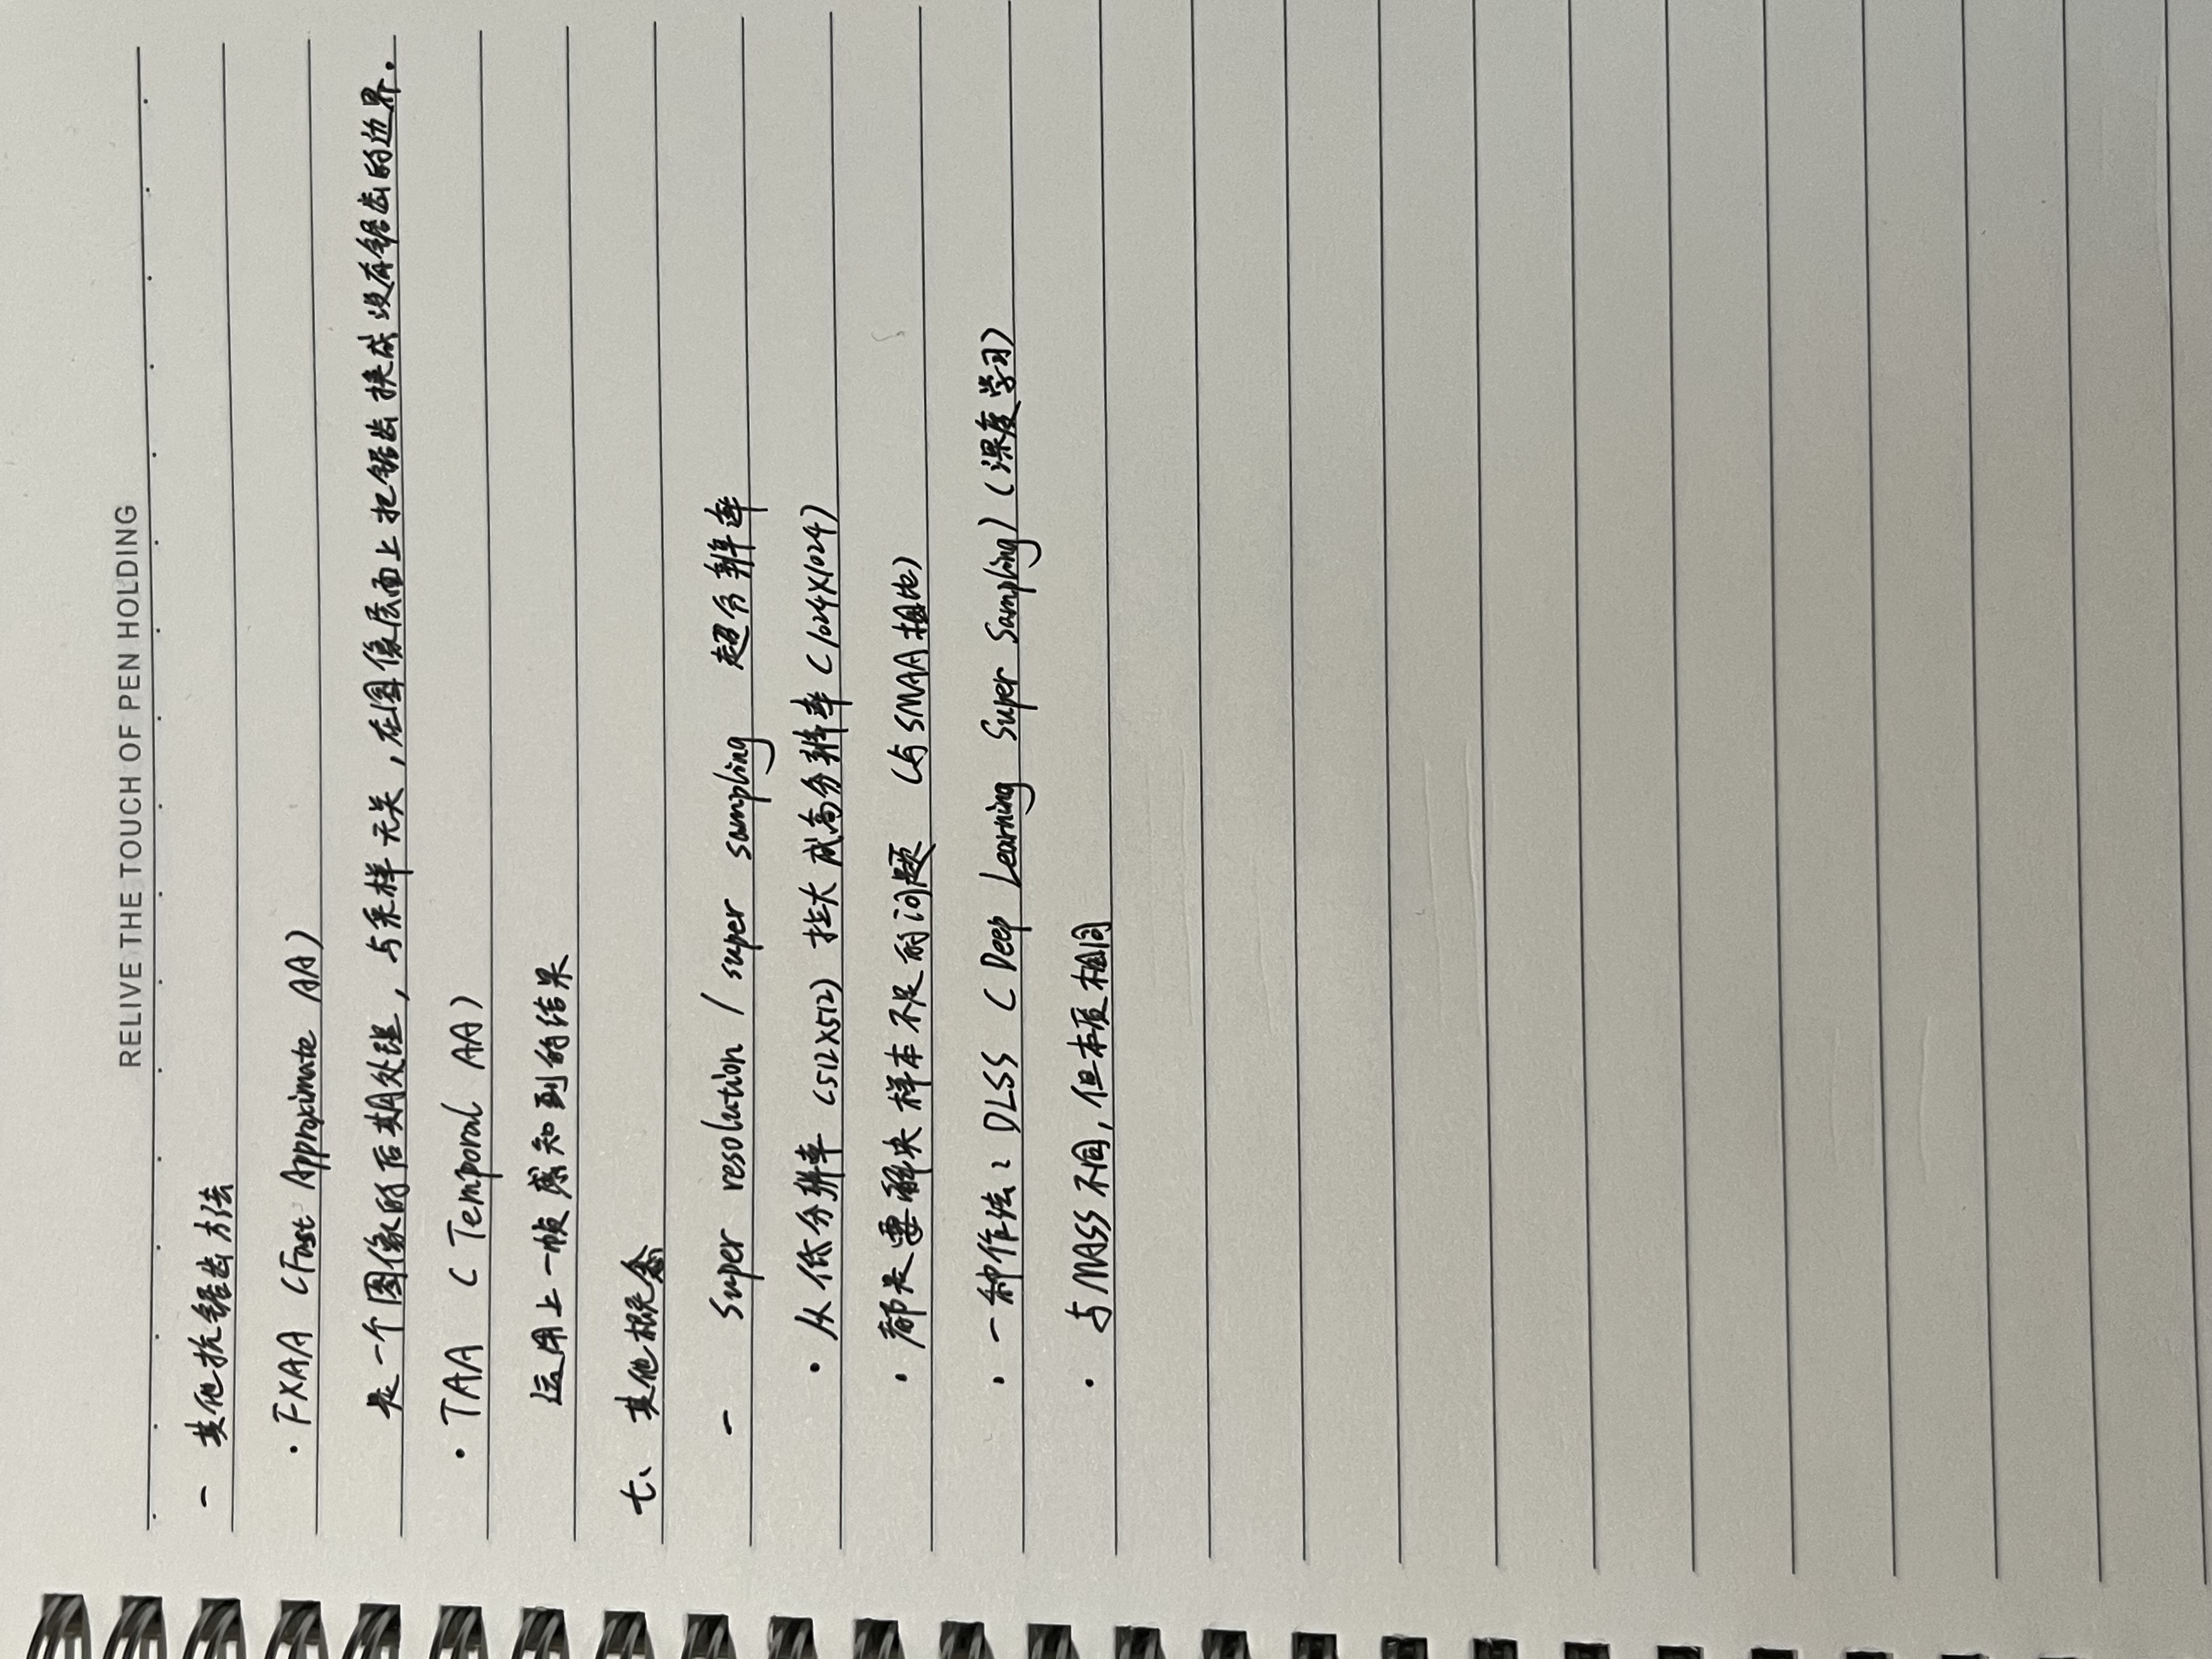 RELIVE THE TOUCH OF PEN HOLDING
- 其他抗锯齿方法
· FXAA (Fast Approximate AA)
是一个图像的后期处理，与采样无关，在图像层面上把锯齿换成没有锯齿的边界.
· TAA (Temporal AA)
运用上一帧感知到的结果
七、其他概念
- Super resolution / super sampling 超分辨率
· 从低分辨率 (512×512) 拉大成高分辨率 (1024×1024)
· 都是要解决样本不足的问题 (与SMAA相比)
· 一种作法：DLSS (Deep Learning Super Sampling) (深度学习)
· 与MASS不同, 但本质相同